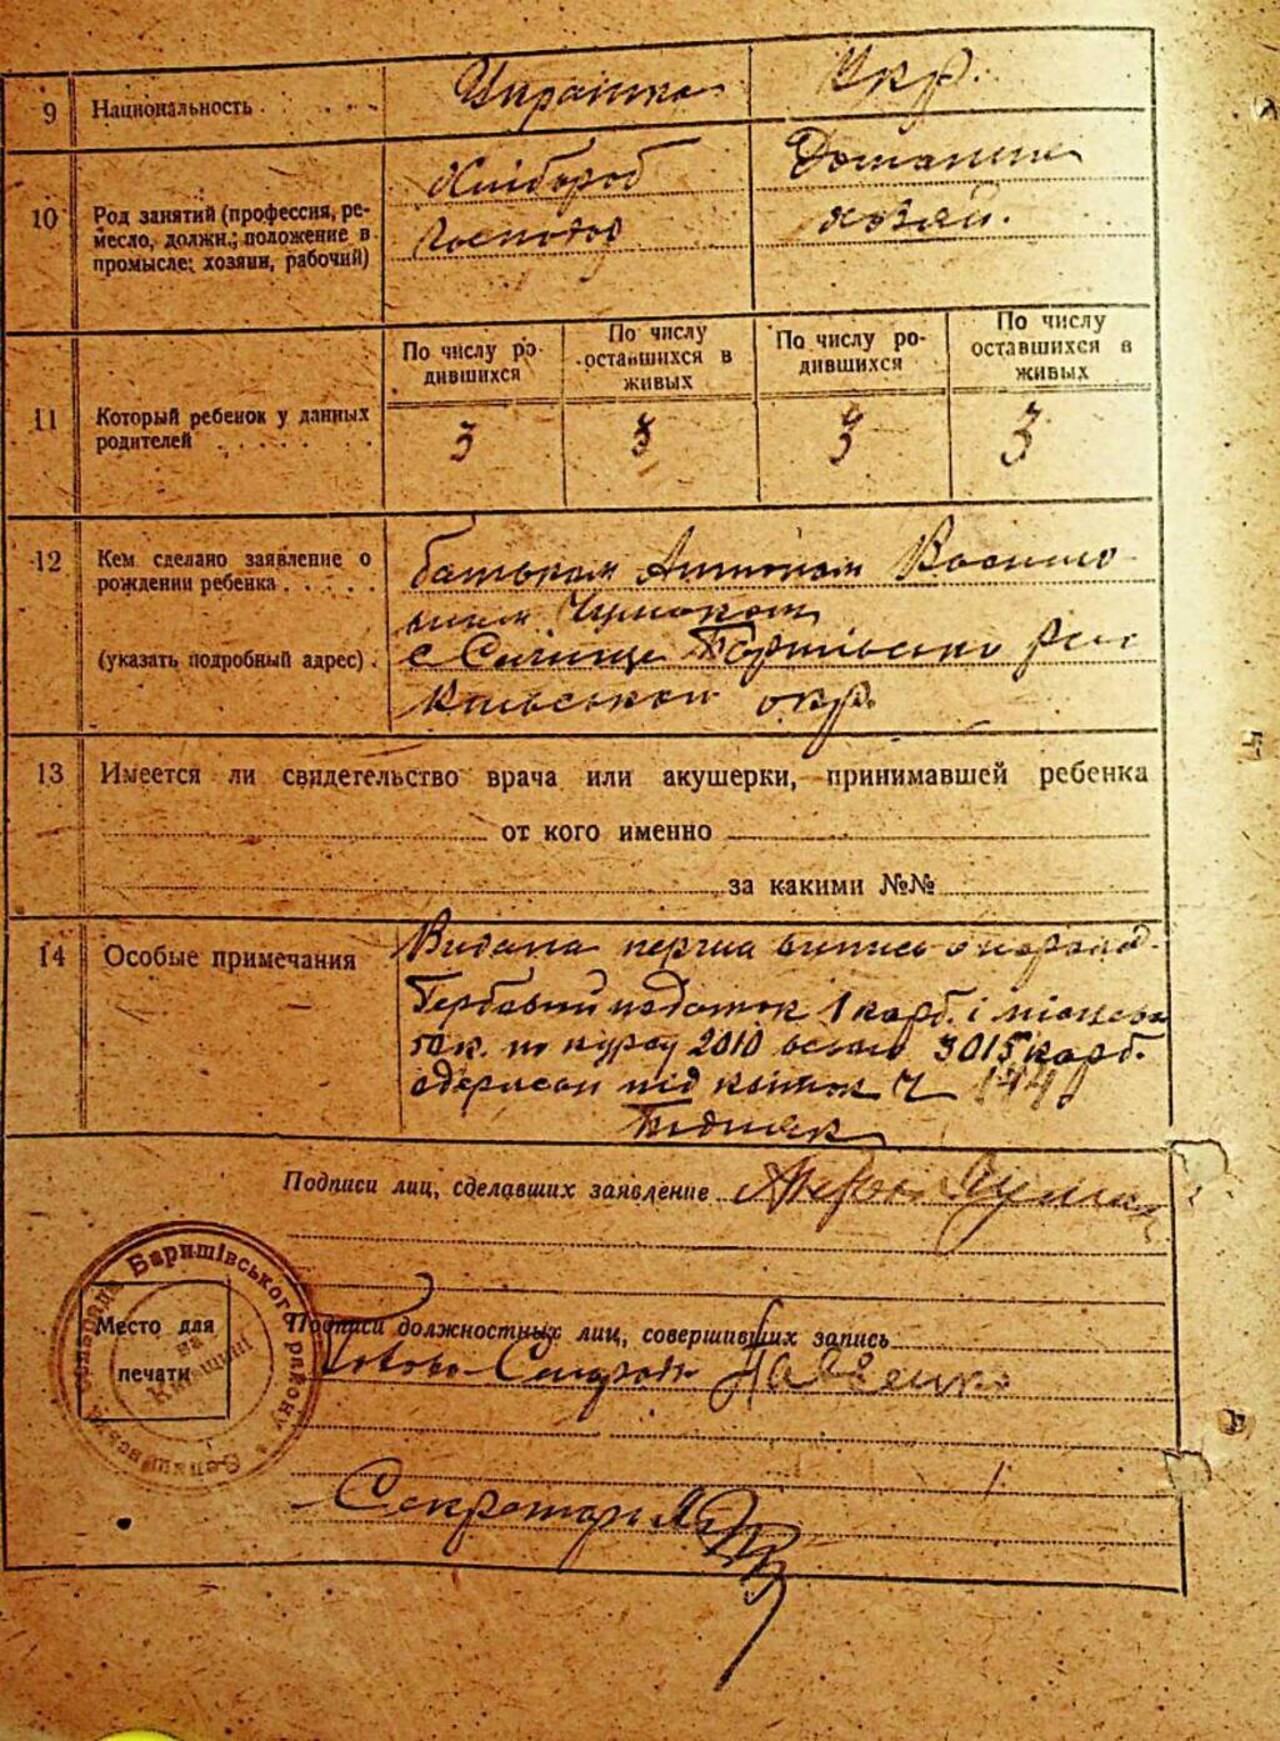 9 Национальность . . . . Украинка Укр.
10 Род занятий (профессия, ре-
месло, должн.; положение в
промысле; хозяин, рабочий)
Хлібороб
Господар
Домашне
хозяй.
11 Который ребенок у данных
родителей . . . . . . .
По числу ро-
дившихся
По числу
оставшихся в
живых
По числу ро-
дившихся
По числу
оставшихся в
живых
3 3 3 3
12 Кем сделано заявление о
рождении ребенка . . . . .
(указать подробный адрес) .
батьком Антоном Васило
с Селище
окр.
13 Имеется ли свидетельство врача или акушерки, принимавшей ребенка
от кого именно
за какими №№
14 Особые примечания
Видана перша випись о народ.
Гербовий податок 1 карб. і місцеве
50 к. по курсу 2010 всього 3015 карб.
одержан під квиток Ч
Подписи лиц, сделавших заявление
Баришівського району
Место для
печати
на
Київщині
Подписи должностных лиц, совершивших запись
Голова Сельради
Секретарь